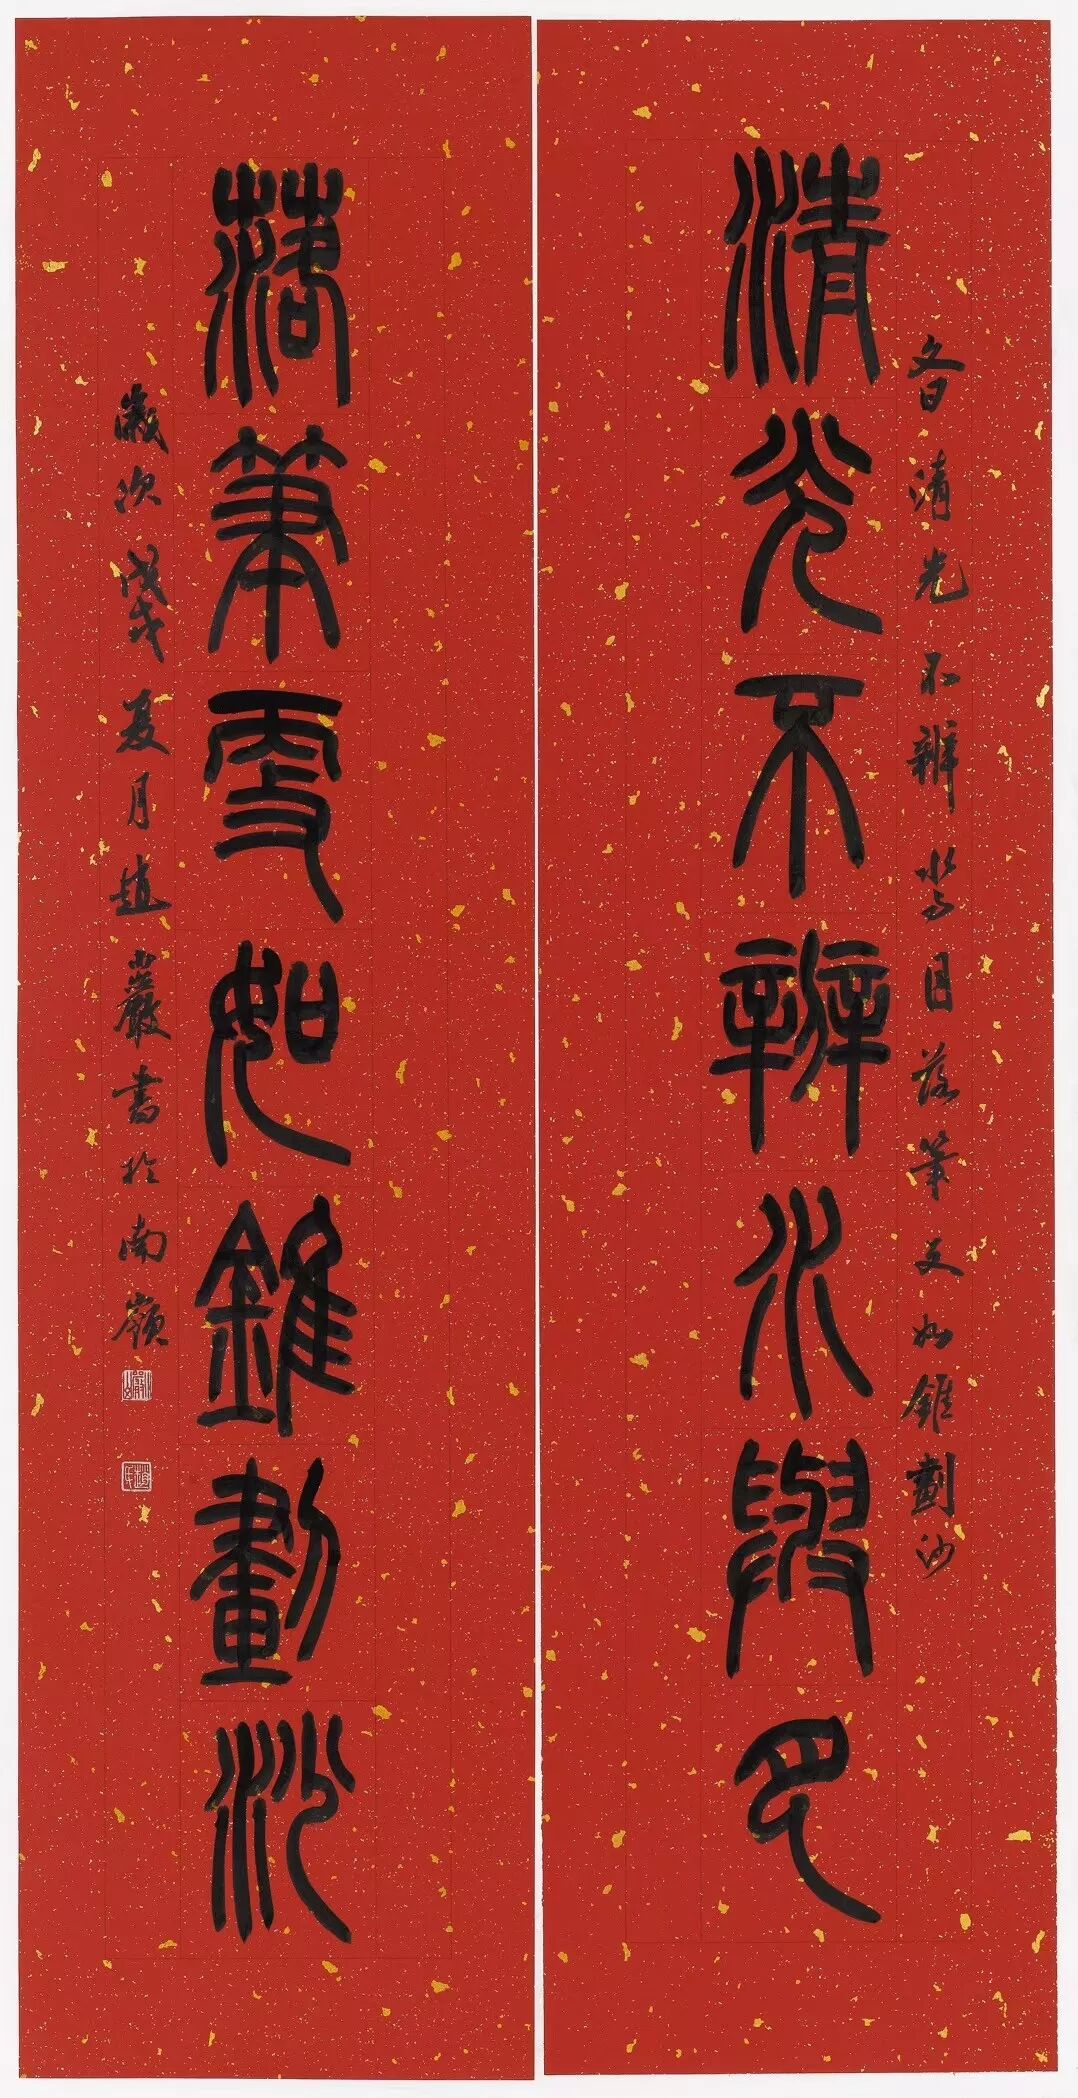 文曰清光不辨水与月落筆更如錐劃沙
清光不辨水與月
落筆更如錐劃沙
歲次戊戌夏月趙巖書於南嶺